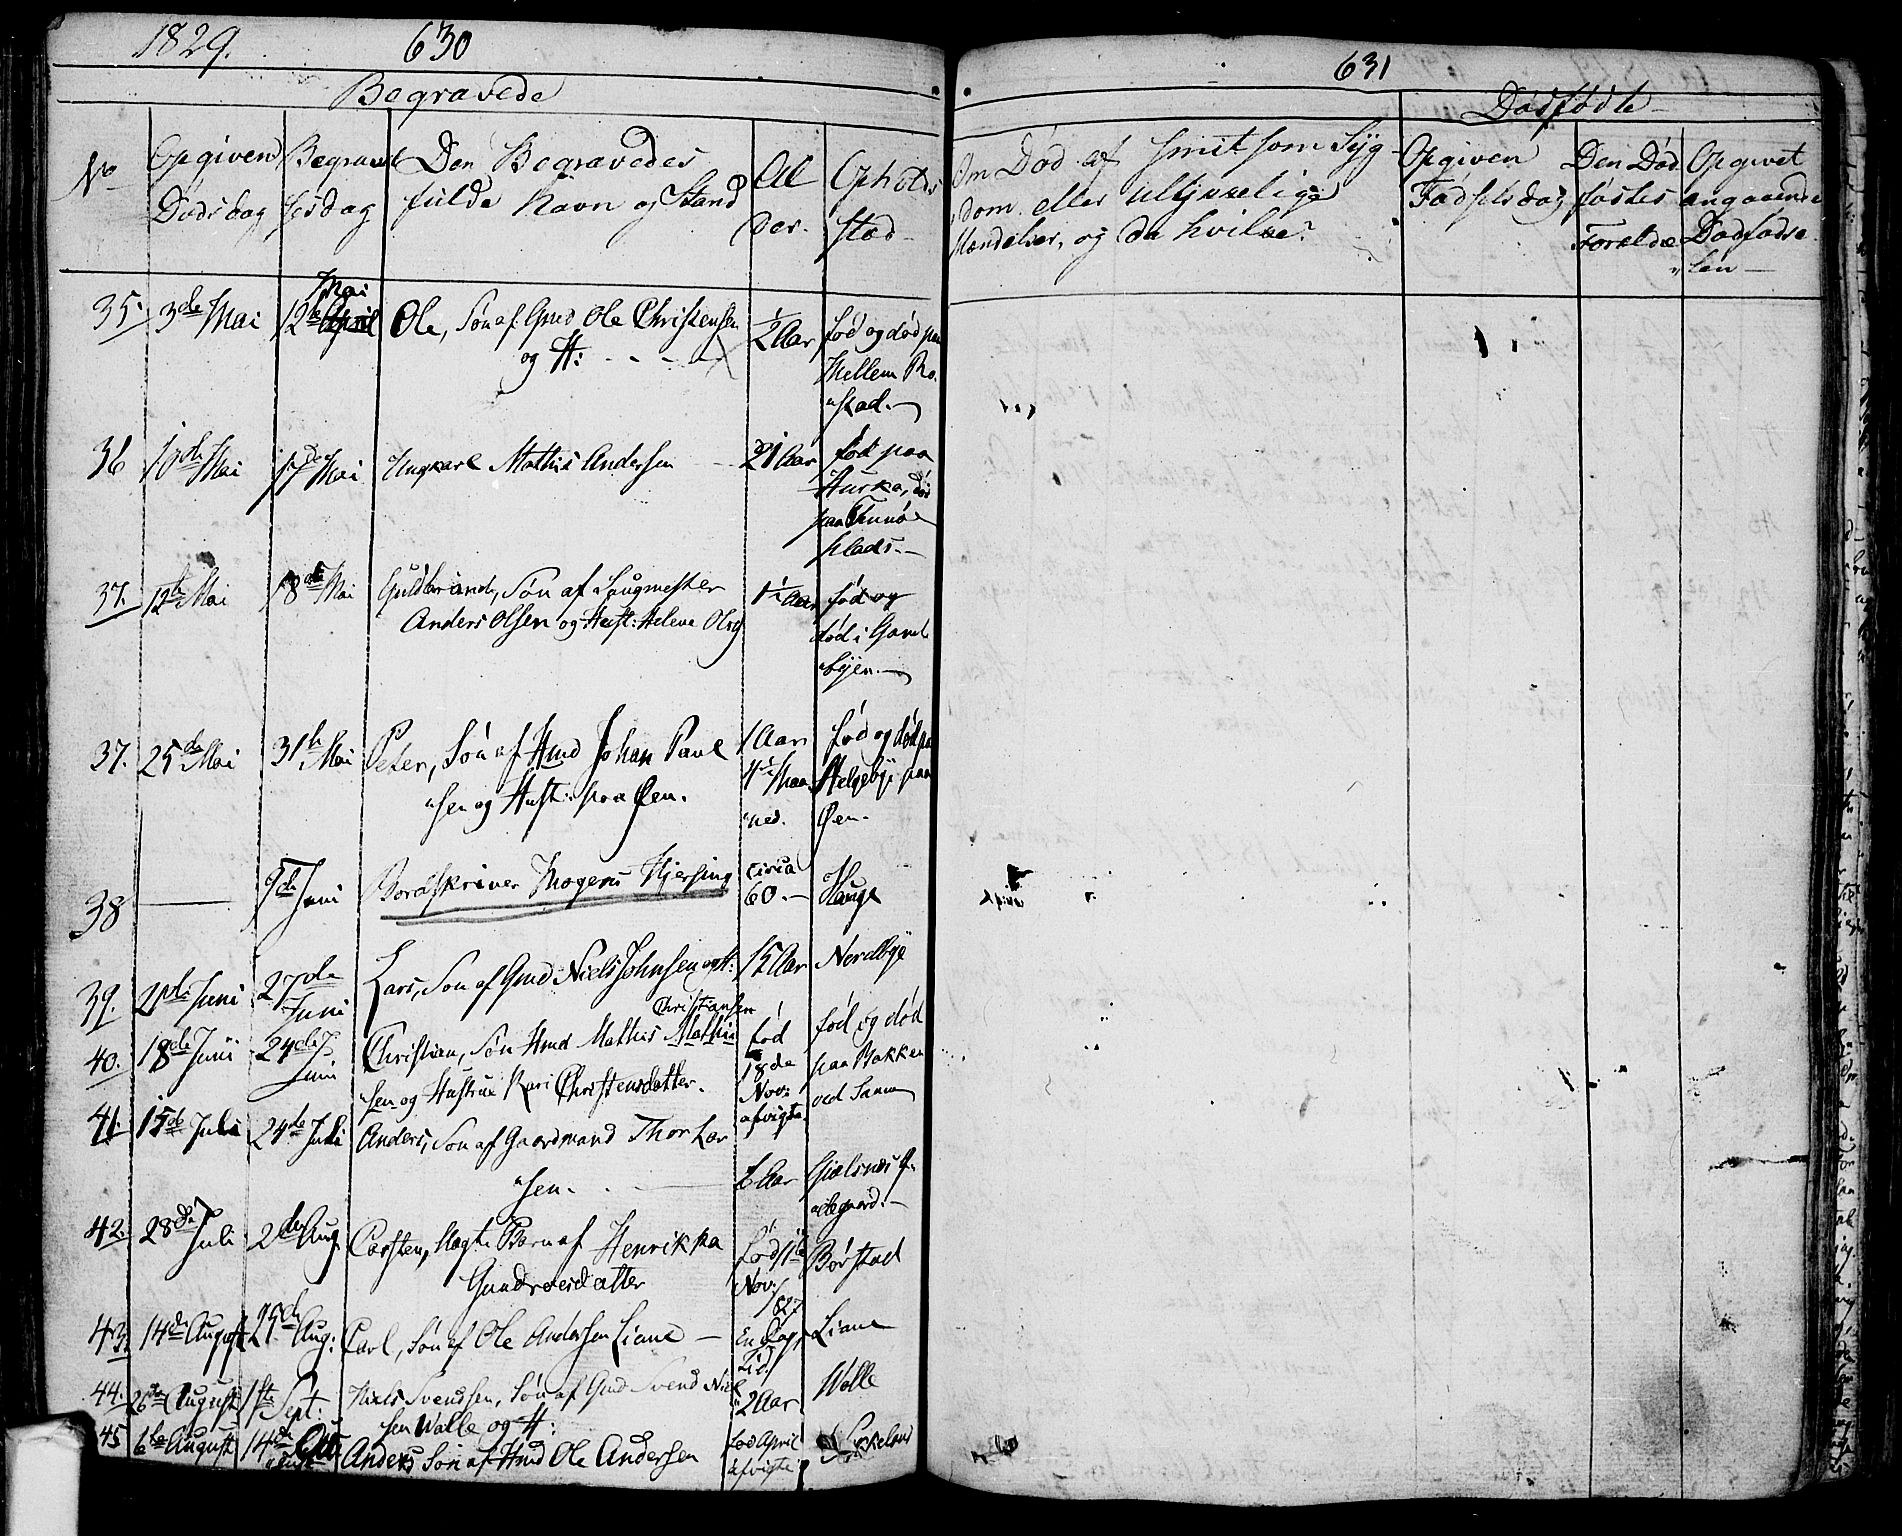 1829. 630
Begravede
No
Opgiven Dødsdag
Begravel sesdag
Den Begravedes fulde Navn og Stand
Al der.
Opholds sted
35. 3de Mai 12te April Mai Ole, Søn af Gmd Ole Christensen 1/2 Aar fød og død paa
og H: - - - Hellem Ro-
stad.
36 10de Mai 17de Mai Ungkarl Mathis Andersen 21 Aar fød paa
Hurka, død
paa Tunøe
plads.
37. 12te Mai 18de Mai Guldbrand, Søn af Laugmester 1 1/2 Aar fød og
Anders Olsen og Hust: Helene Olsd død i Gaml
byen.
37. 25de Mai 31te Mai Peter, Søn af Hmd Johan Paul 1 Aar fød og død paa
sen og Hust: paa Øen. 4 Maa Helgebye paa
ned. Øen.
38 — 5de Juni Bordskriver Mogens Hjersing circa 60.— Hauge
39. 21de Juni 27de Juni Lars, Søn af Gmd Niels Johnsen og H: 15 Aar Nordbye
40. 18de Juni 24de Juni Christian, Søn Hmd Mathis Mathi Christiansen fød fød og død
sen og Hustrue Kari Christensdatter. 18de paa Bakken
Nov: ved Sanne
afvigte
41. 15de Juli 24de Juli Anders, Søn af Gaardmand Thor Lar
sen. 6 Aar Gjelsnes Ø-
degaard.
42. 28de Juli 2de Aug. Carsten, Uægte Barn af Henrikka fød Børstad
Gundersdatter Nov:
/827
43. 14de August 25de Aug: Carl, Søn af Ole Andersen Liane — En Dags Liane
Tid
44. 26de August 1ste Sept: Niels Svendsen, Søn af Gmd Svend Niel 2 Aar Walle
sen Walle og H:
45 6te August 14de Anders Søn af Hmd Ole Andersen fød April
afvigte
631
Om Død af smitsom Syg
dom eller ulykkelige
Hændelser, og da hvilke?
Dødfødte
Opgiven Fødselsdag
Den Død fødtes Forældre
Opgivet angaaende Dødfødse len